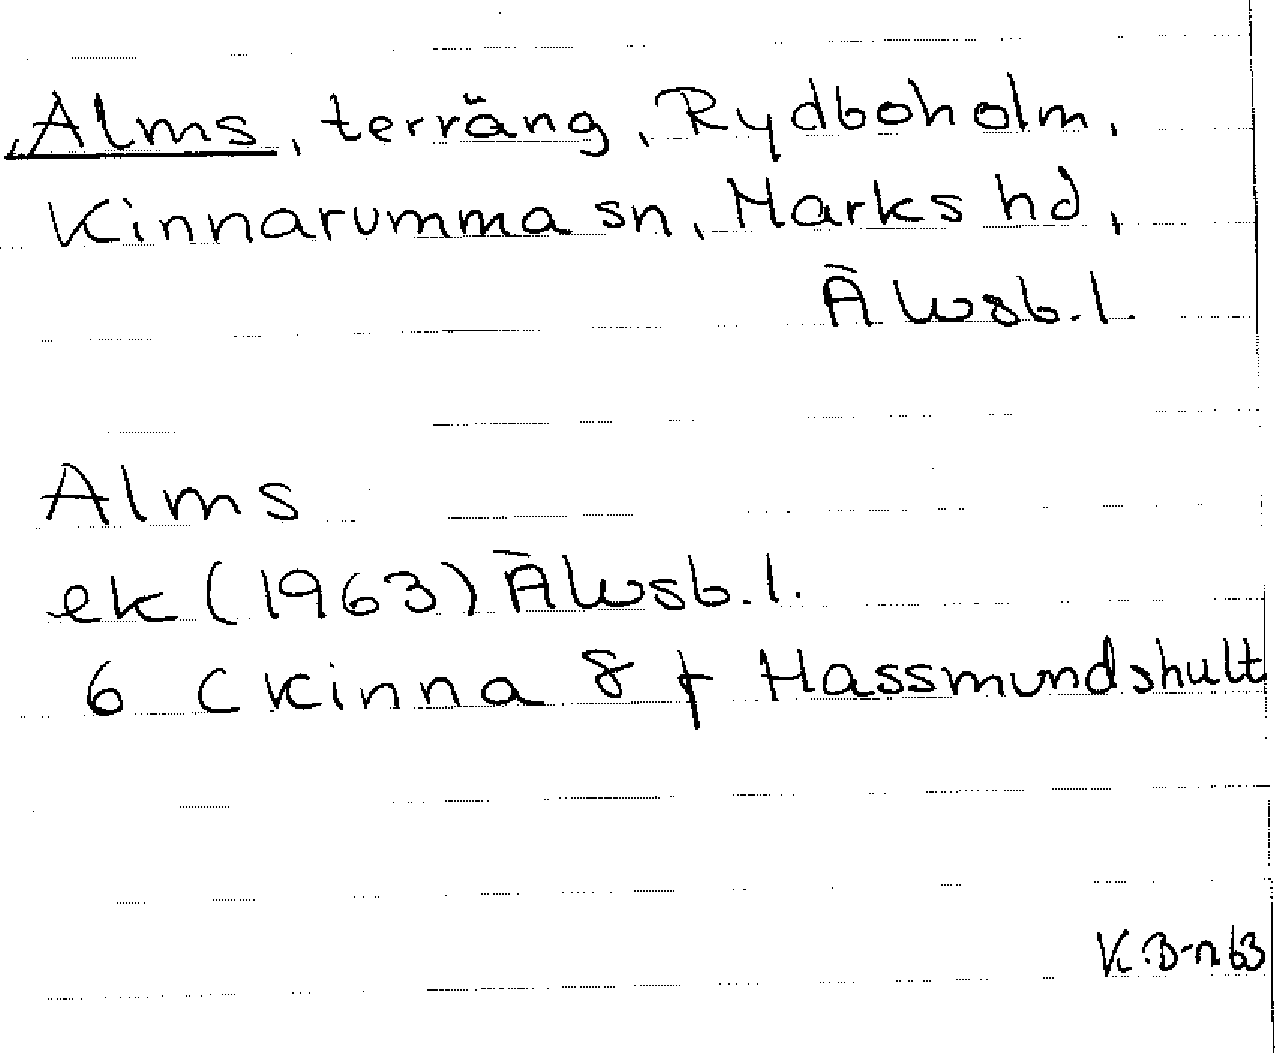 Alms, terräng, Rydboholm,
Kinnarumma sn, Marks hd,
Älvsb. l.
Alms
ek (1963) Älvsb. l.
6 C Kinna 8 f Hassmundshult
K.B-n 63